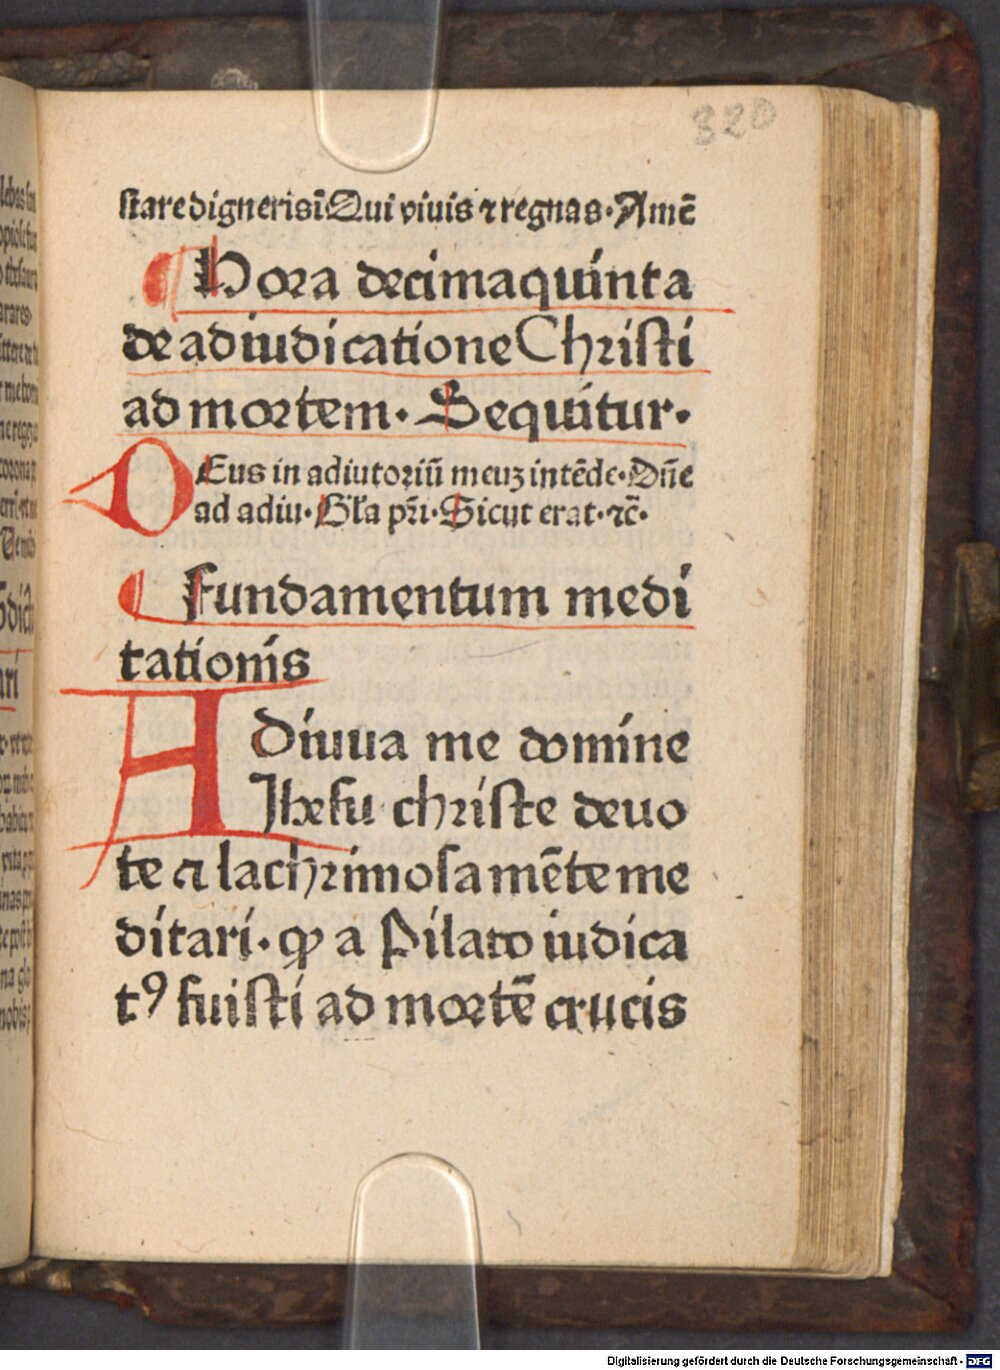 320
stare digneris i· Qui viuis ⁊ regnas· Amē
¶ Hora decimaquinta
de adiudicatione Christi
ad mortem· Sequitur·
DEus in adiutoriū meuꝫ intēde· Dn̄e
ad adiu· Gl̄a pr̄i· Sicut erat· ⁊c̄·
¶ Fundamentum medi
tationis
ADiuua me domine
Jhesu christe deuo
te et lachrimosa mēte me
ditari· ꝙ a Pilato iudica
tꝰ fuisti ad mortē crucis
Digitalisierung gefördert durch die Deutsche Forschungsgemeinschaft - DFG